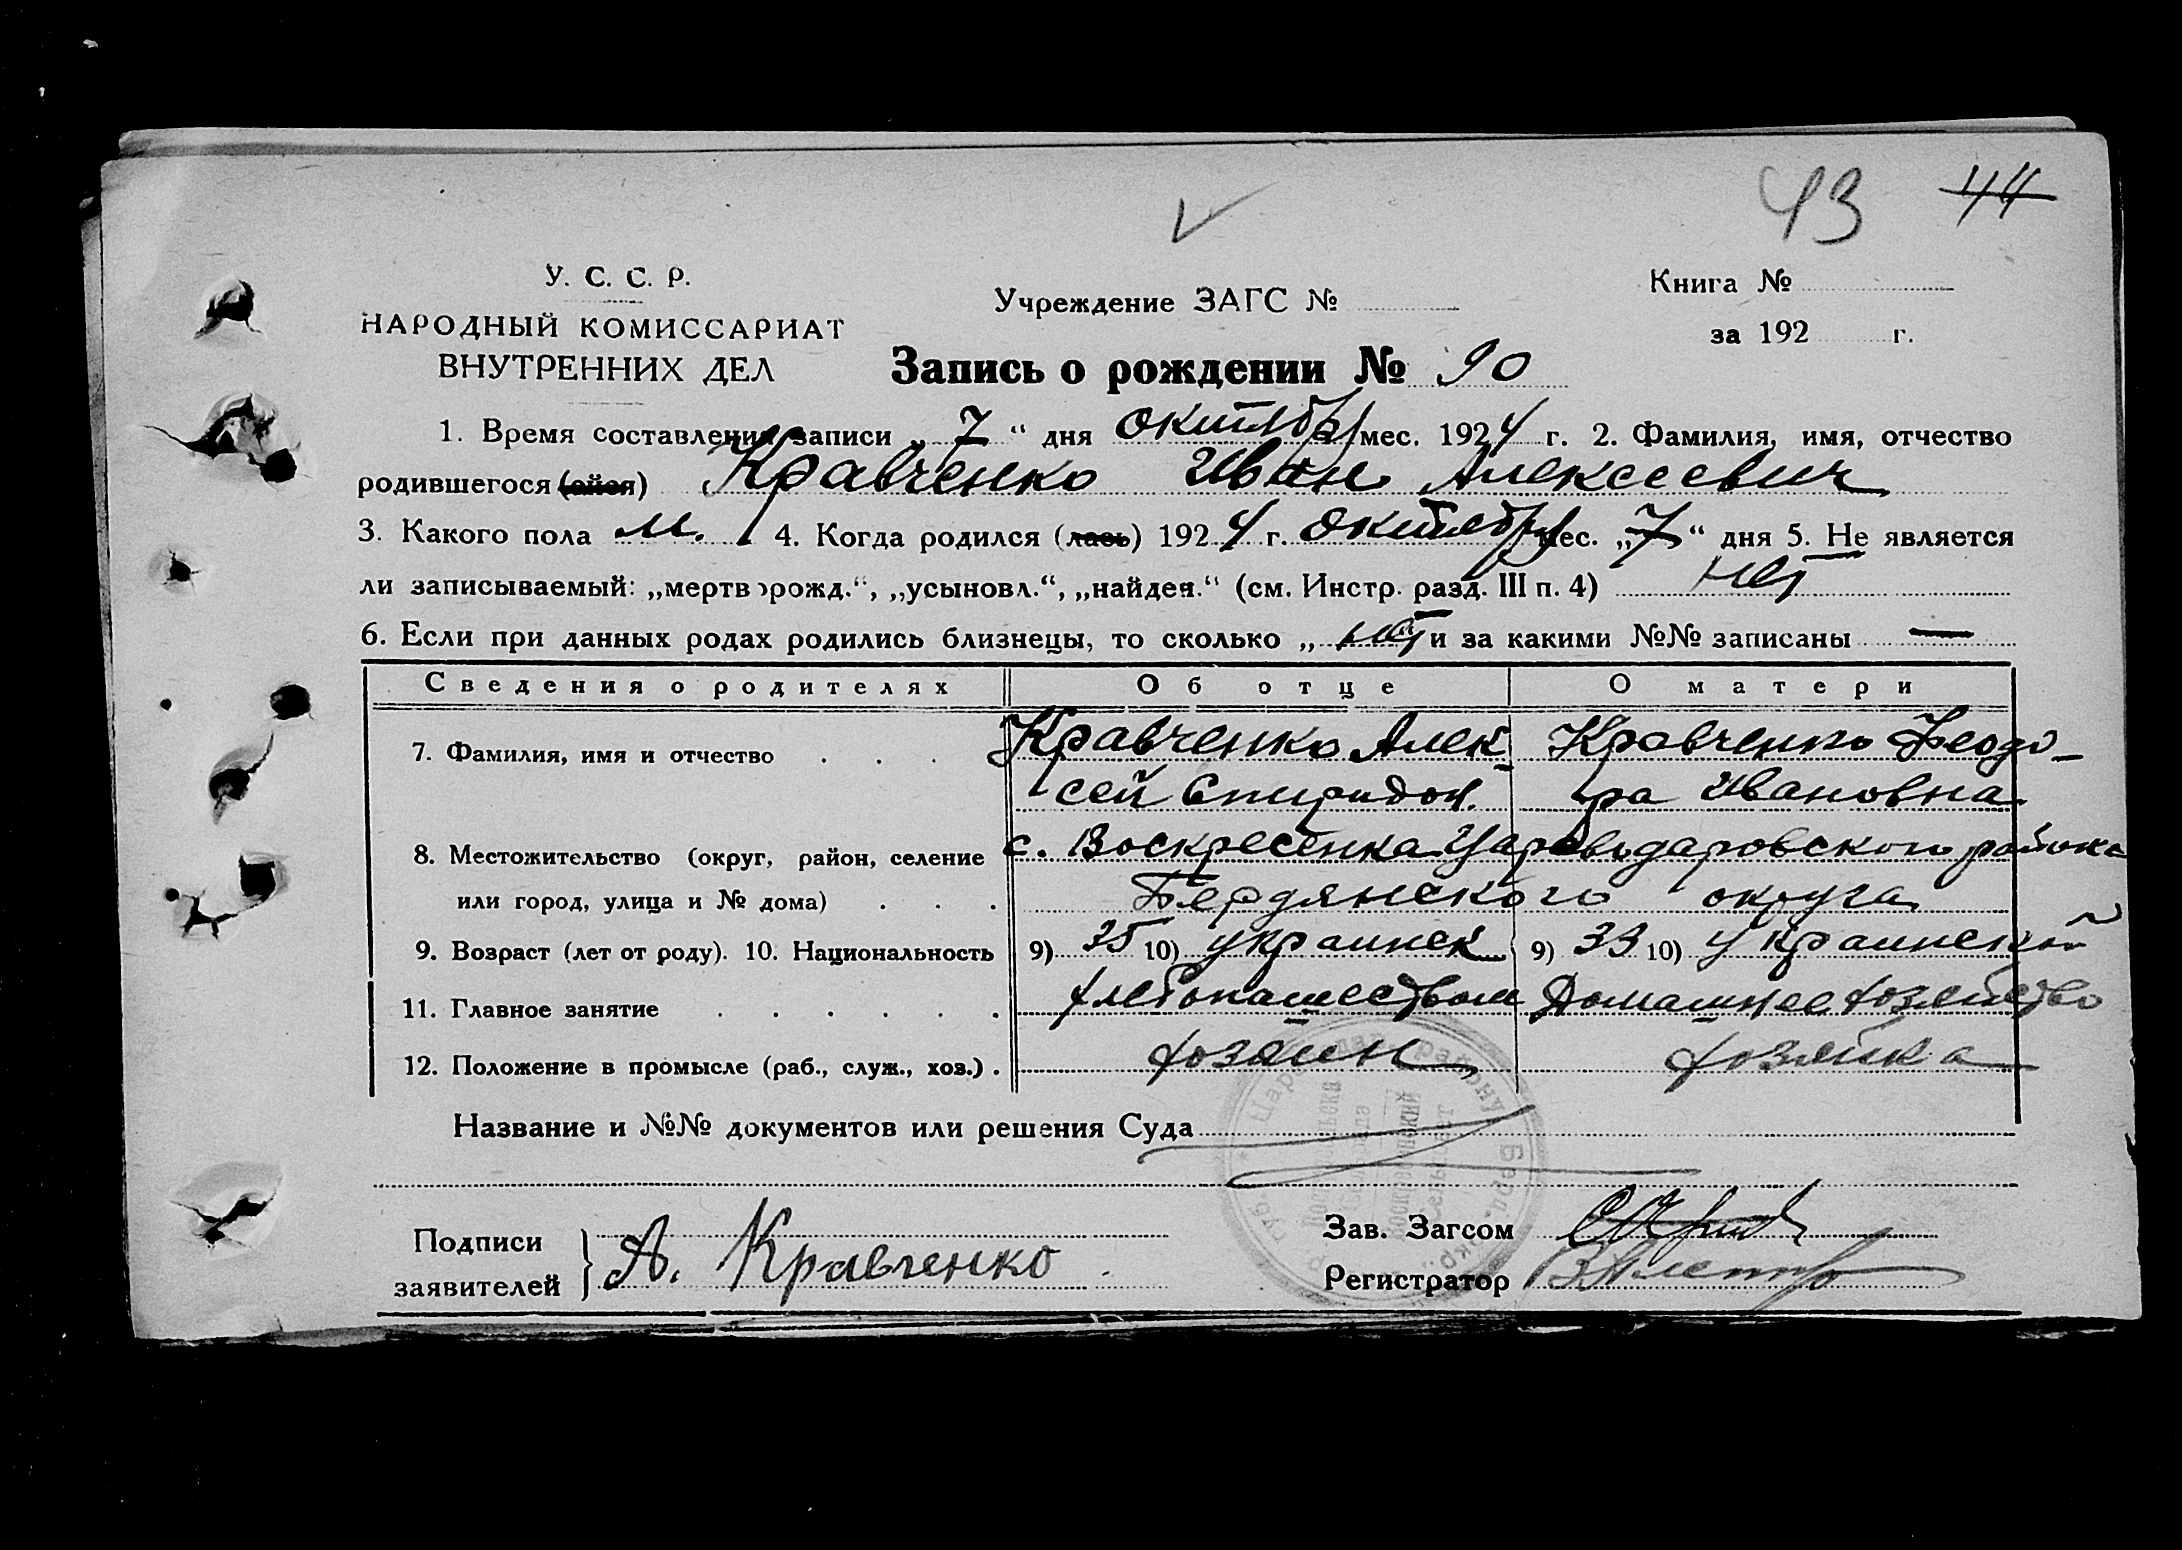 43 44
У. С. С. Р.
НАРОДНЫЙ КОМИССАРИАТ
ВНУТРЕННИХ ДЕЛ
Учреждение ЗАГС №
Книга №
за 192 г.
Запись о рождении № 90
1. Время составления записи „ 7 “ дня октября мес. 1924 г. 2. Фамилия, имя, отчество
родившегося (ойся) Кравченко Иван Алексеевич
3. Какого пола м. 4. Когда родился (лась) 1924 г. октября мес. „7“ дня 5. Не является
ли записываемый: „мертворожд.“, „усыновл.“, „найден.“ (см. Инстр. разд. III п. 4) нет
6. Если при данных родах родились близнецы, то сколько „ нет и за какими №№ записаны —
Сведения о родителях Об отце О матери
7. Фамилия, имя и отчество . . . Кравченко Алек- Кравченко Феодо-
сей Спиридон. ра Ивановна
8. Местожительство (округ, район, селение с. Воскресенка Цареводаровского района
или город, улица и № дома) . . . Бердянского округа
9. Возраст (лет от роду). 10. Национальность 9) 35 10) украинск 9) 33 10) украинской
11. Главное занятие . . . . . . хлебопашеством Домашнее хозяйство
12. Положение в промысле (раб., служ., хоз.) . хозяин хозяйка
Название и №№ документов или решения Суда
Подписи
заявителей } А. Кравченко
Зав. Загсом
Регистратор